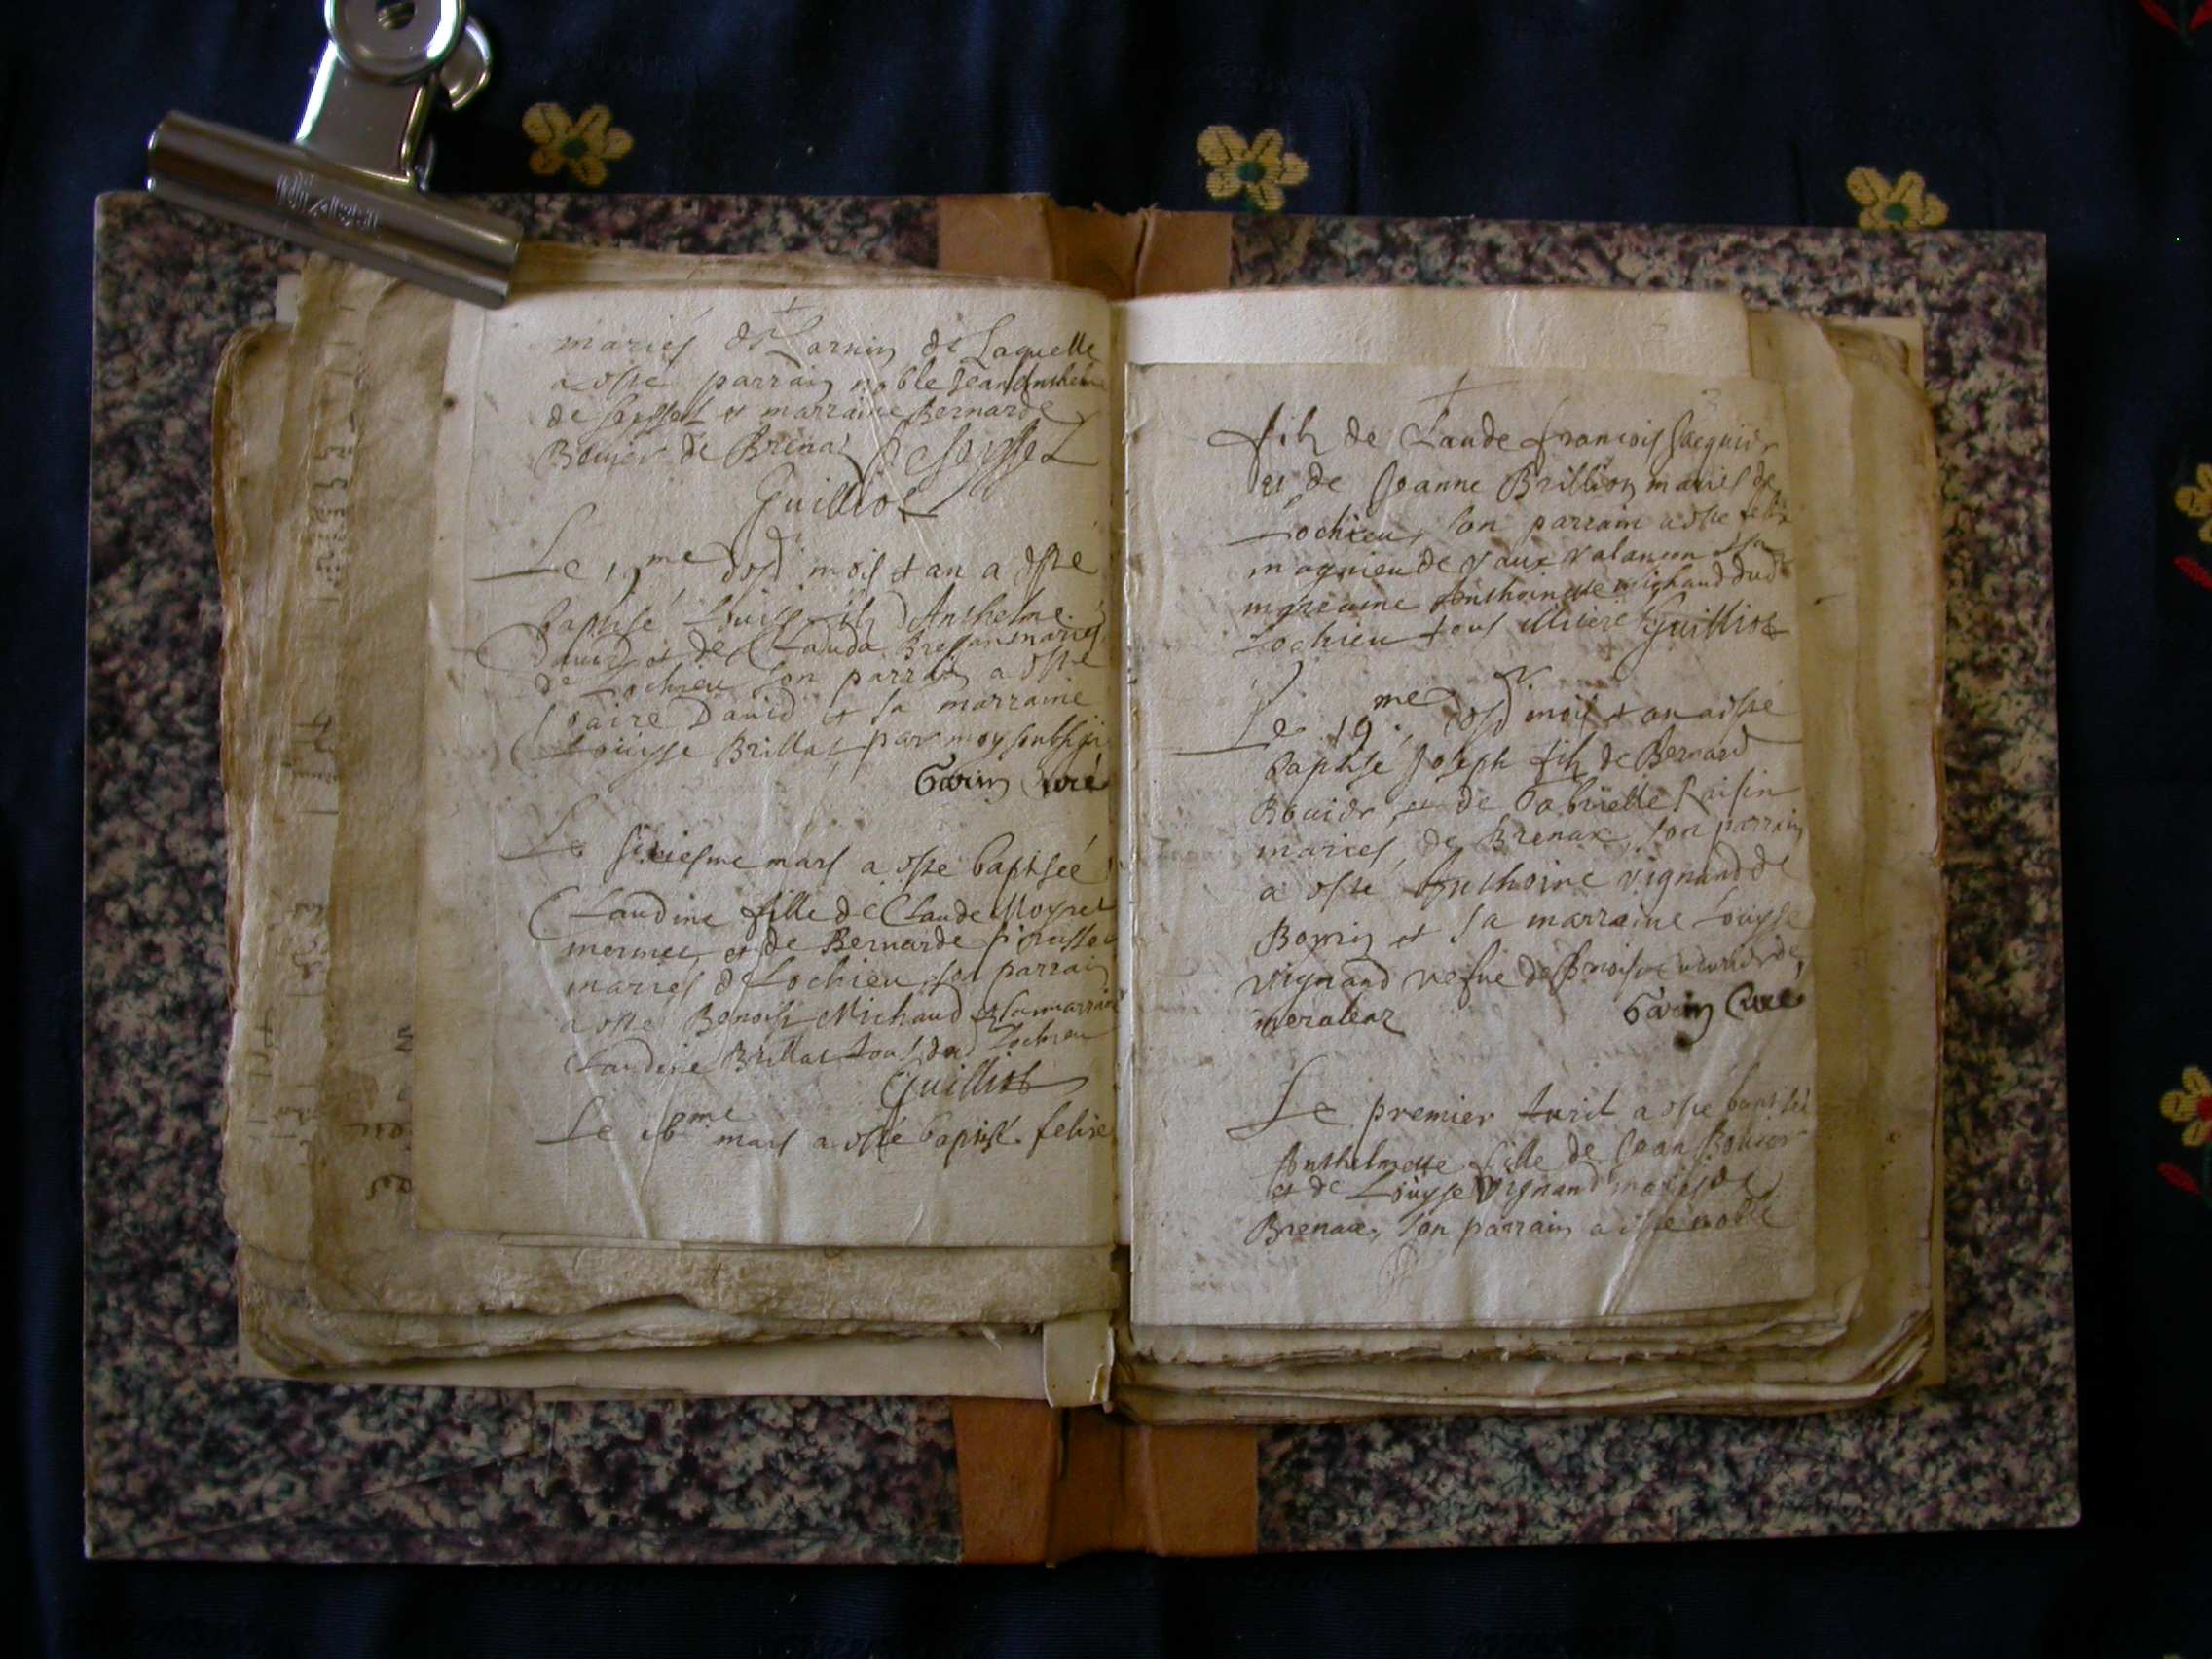 mariés de Lornin de Laquelle
a esté parrain noble Jean Anthelme
de Seyssel et marraine Bernarde
Bouier de Brenaz De Seyssel
Guilliot
Le me dud mois et an a esté
baptisé Louis filz Anthelme
David et de Clauda Bressan mariés
de Lochieu son parrain a esté
Claire David et sa marraine
Louisse Brillat par moy soubsig
Gavin Curé
Le sixiesme mars a esté baptisée
Claudine fille de Claude Moyret
mermet et de Bernarde
mariés de Lochieu son parrain
a esté Benoist Michaud et sa marraine
Claudine Brillat tous dud Lochieu
Guilliot
Le 16me mars a esté baptisé felix
filz de Claude francois Jacquier
et de Jeanne Brillion mariés de
Lochieu, son parrain a esté felix
magnieu de Vaux Valancon et sa
marraine Anthoinette michaud dud
Lochieu tous illiteré Guilliot
Le 19me dud mois et an a esté
baptisé Joseph filz de Bernard
Bouier et de Gabrielle Raisin
mariés de Brenax, son parrain
a esté Anthoine vignand de
et sa marraine Louyse
vignand vefue de
meraleaz Gavin Curé
Le premier Avril a esté baptisée
Anthelmette fille de Jean Bouier
et de Louyse Vignand mariés de
Brenaxe, son parrain a esté noble